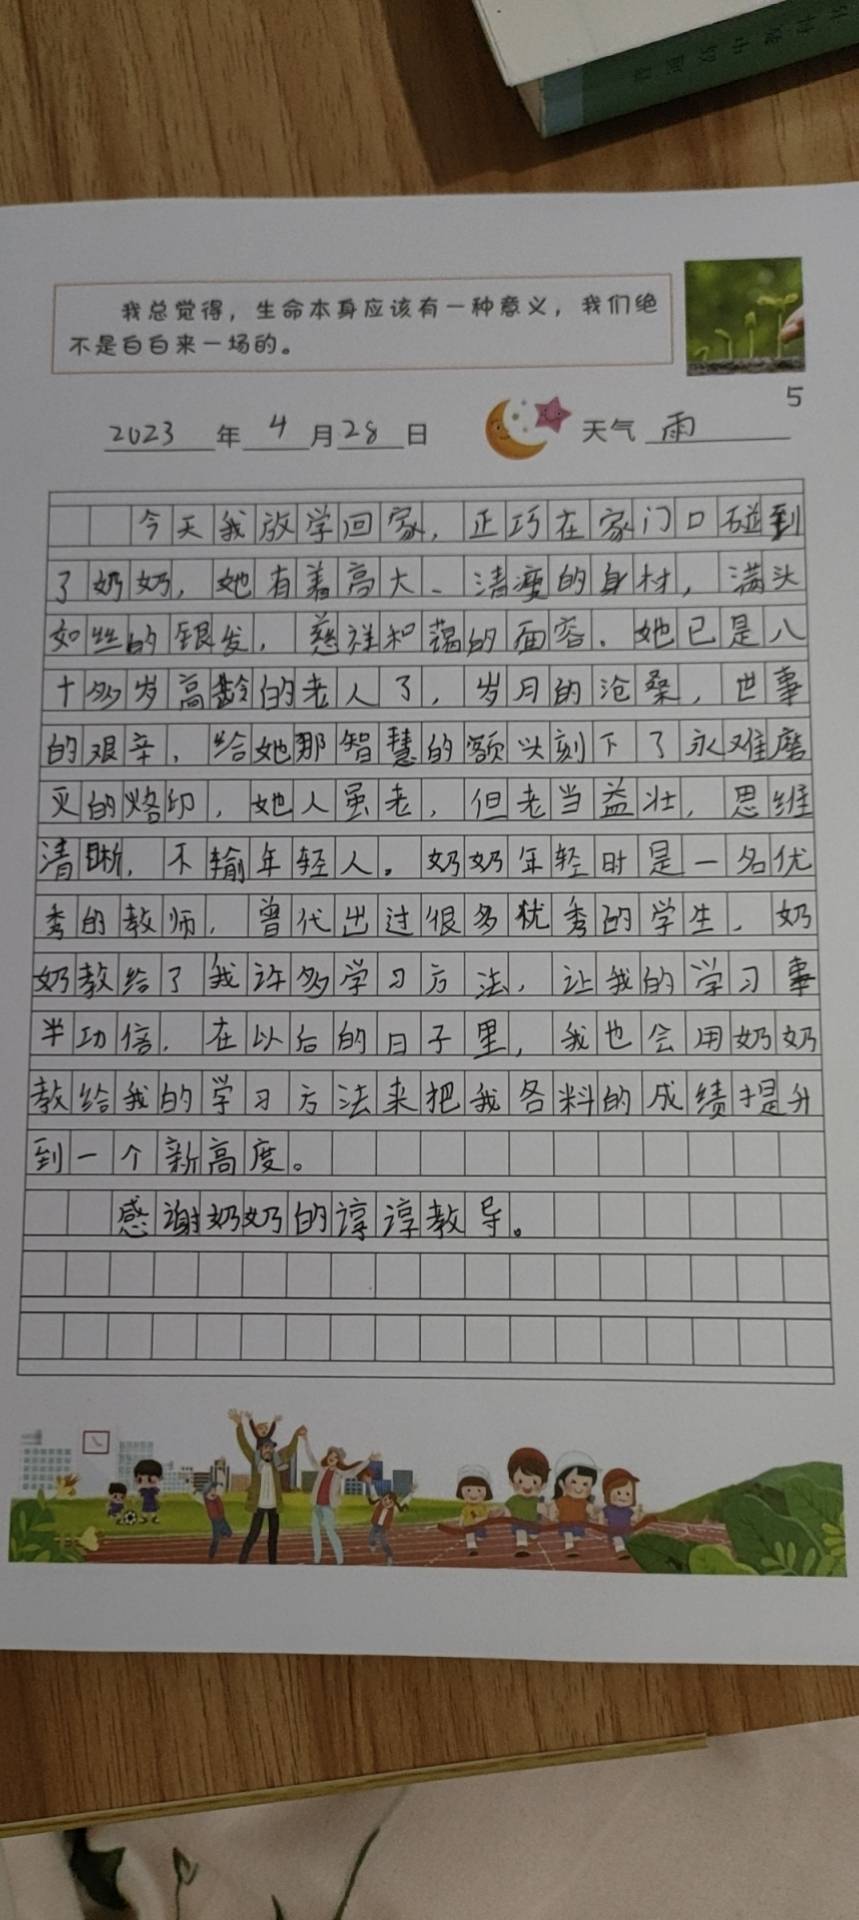 我总觉得，生命本身应该有一种意义，我们绝
不是白白来一场的。
5
2023年4月28日 天气 雨
今天我放学回家，正巧在家门口碰到
了奶奶，她有着高大、清瘦的身材，满头
如丝的银发，慈祥和蔼的面容。她已是八
十多岁高龄的老人了，岁月的沧桑，世事
的艰辛，给她那智慧的额头刻下了永难磨
灭的烙印，她人虽老，但老当益壮，思维
清晰，不输年轻人。奶奶年轻时是一名优
秀的教师，曾代出过很多犹秀的学生，奶
奶教给了我许多学习方法，让我的学习事
半功倍，在以后的日子里，我也会用奶奶
教给我的学习方法来把我各料的成绩提升
到一个新高度。
感谢奶奶的谆谆教导。